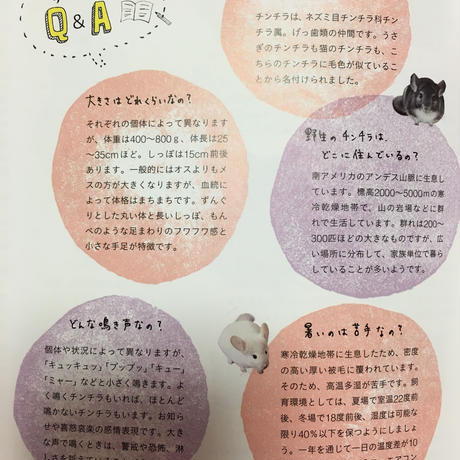 Q & A
チンチラは、ネズミ目チンチラ科チン
チラ属。げっ歯類の仲間です。うさ
ぎのチンチラも猫のチンチラも、こ
ちらのチンチラに毛色が似ていること
から名付けられました。
大きさはどれくらいなの？
それぞれの個体によって異なります
が、体重は400〜800g、体長は25
〜35cmほど。しっぽは15cm前後
あります。一般的にはオスよりもメ
スの方が大きくなりますが、血統に
よって体格はまちまちです。ずんぐ
りとした丸い体と長いしっぽ、もん
ぺのような足まわりのフワフワ感と
小さな手足が特徴です。
野生のチンチラは、
どこに住んでいるの？
南アメリカのアンデス山脈に生息し
ています。標高2000〜5000mの寒
冷乾燥地帯で、山の岩場などに群れ
で生活しています。群れは200〜
300匹ほどの大きなものですが、広
い場所に分布して、家族単位で暮ら
していることが多いようです。
どんな鳴き声なの？
個体や状況によって異なりますが、
「キュッキュッ」「プップッ」「キュー」
「ミャー」などと小さく鳴きます。よ
く鳴くチンチラもいれば、ほとんど
鳴かないチンチラもいます。お知ら
せや喜怒哀楽の感情表現です。大き
な声で鳴くときは、警戒や恐怖、淋
しさを訴えている
暑いのは苦手なの？
寒冷乾燥地帯に生息したため、密度
の高い厚い被毛に覆われています。
そのため、高温多湿が苦手です。飼
育環境としては、夏場で室温22度前
後、冬場で18度前後、湿度は可能な
限り40％以下を保つようにしましょ
う。一年を通して一日の温度差が10
エアコン